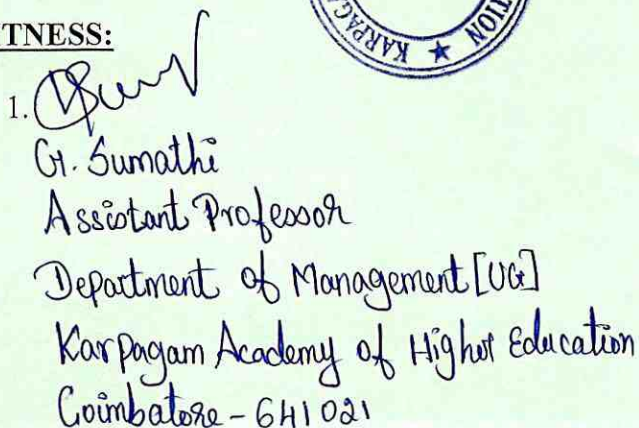 TNESS:
KARPAGA
TION
1.
G. Sumathi
Assistant Professor
Department of Management [UG]
Karpagam Academy of Higher Education
Coimbatore - 641021